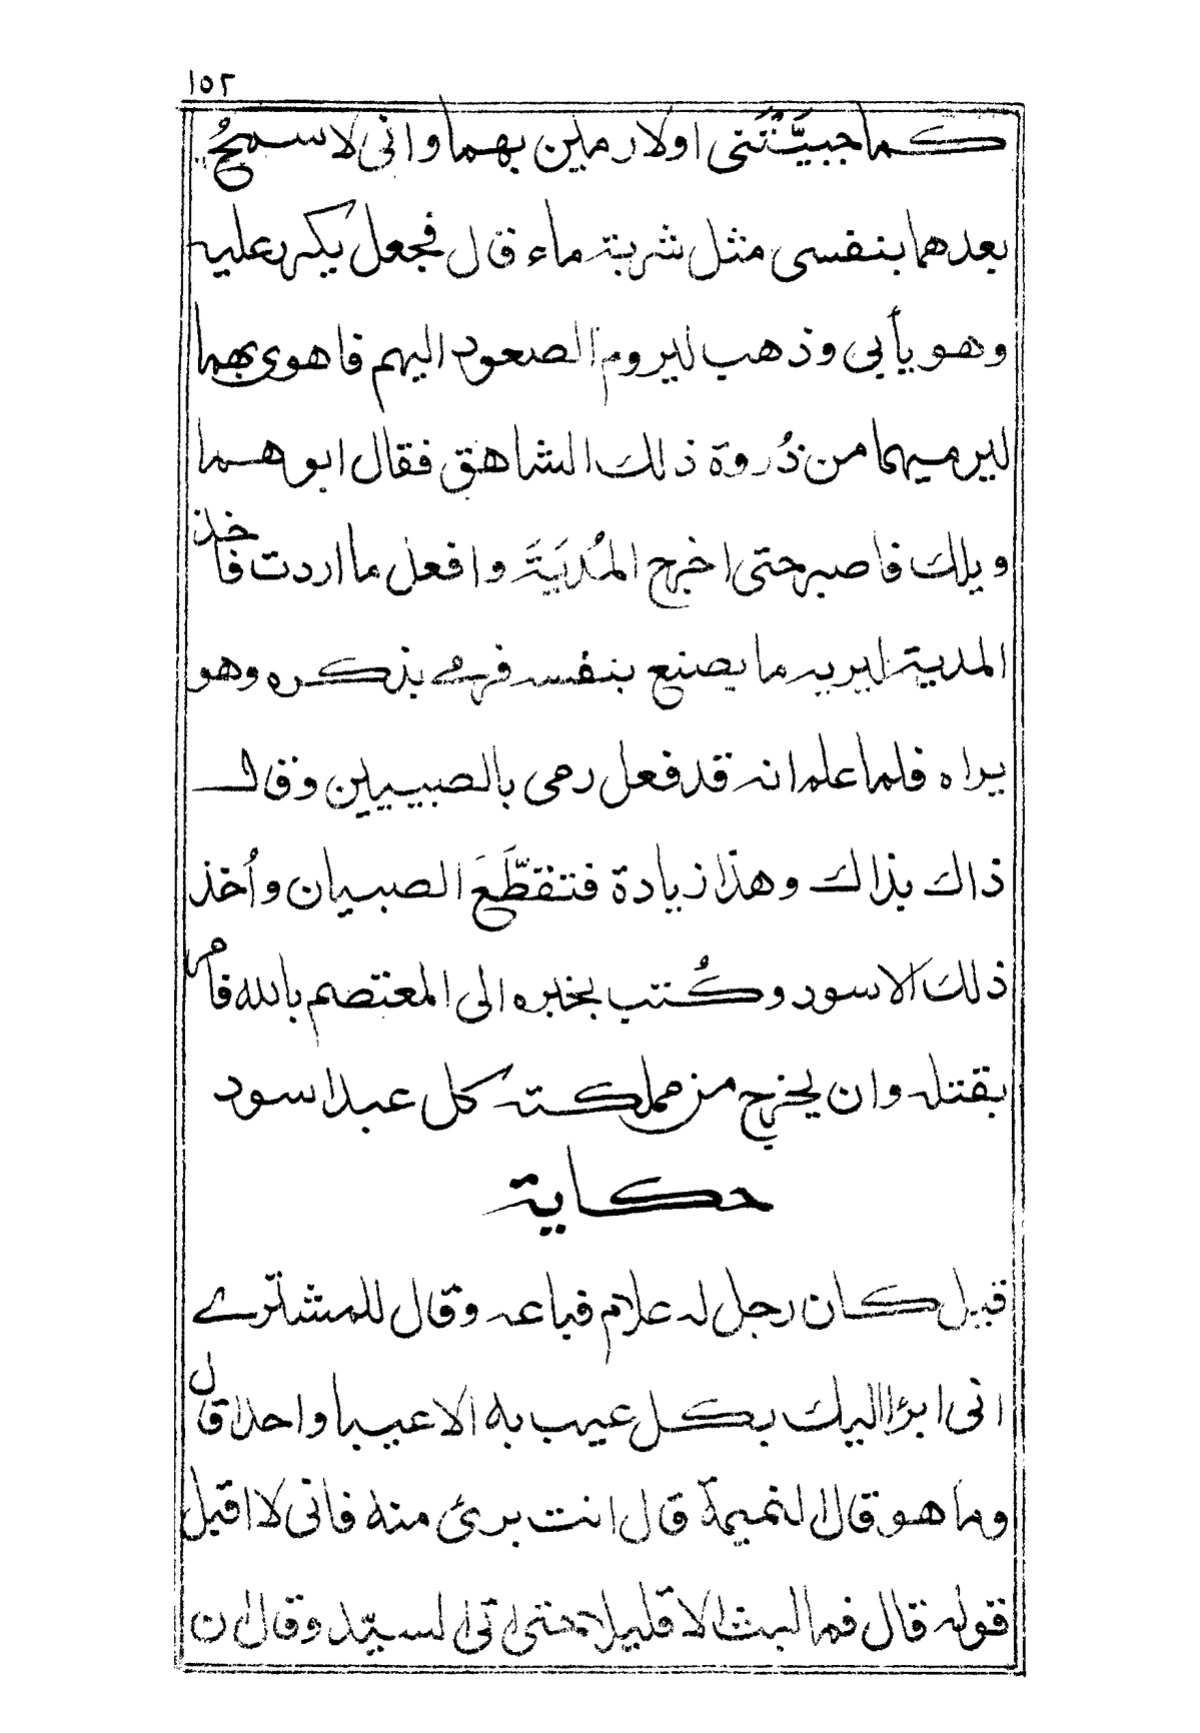 ١٥٢
كما جببيَّتْنَنى اولارملين بهما وانى لاسمحُ
بعدهما بنفسى مثل شربة ماء قال فجعل يكر رعليه
وهو يأبى وذهب ليروم الصعود اليهم فاهوى بهما
ليرميهما من ذُروة ذلك الشاهق فقال ابوهما
ويلك فاصبر حتى اخرج المُديَةَ وافعل ما اردت فاخذ
المدية ليريه ما يصنع بنفسه فرمى بذكره وهو
يراه فلما علم انه قد فعل رمى بالصبيين وقال
ذاك بذاك وهذا زيادة فتقطَّعَ الصبيان وأُخذ
ذلك الاسود وكُتب بخبره الى المعتصم بالله فامر
بقتله وان يخرج من مملكته كل عبد اسود
حكاية
قيل كان رجل له غلام فباعه وقال للمشترى
انى ابرٔا اليك بكل عيب به الا عيبا واحدا قال
وما هو قال النميمة قال انت برئ منه فانى لا اقبل
قوله قال فما لبث الا قليلا حتى اتى السيّد وقال ان